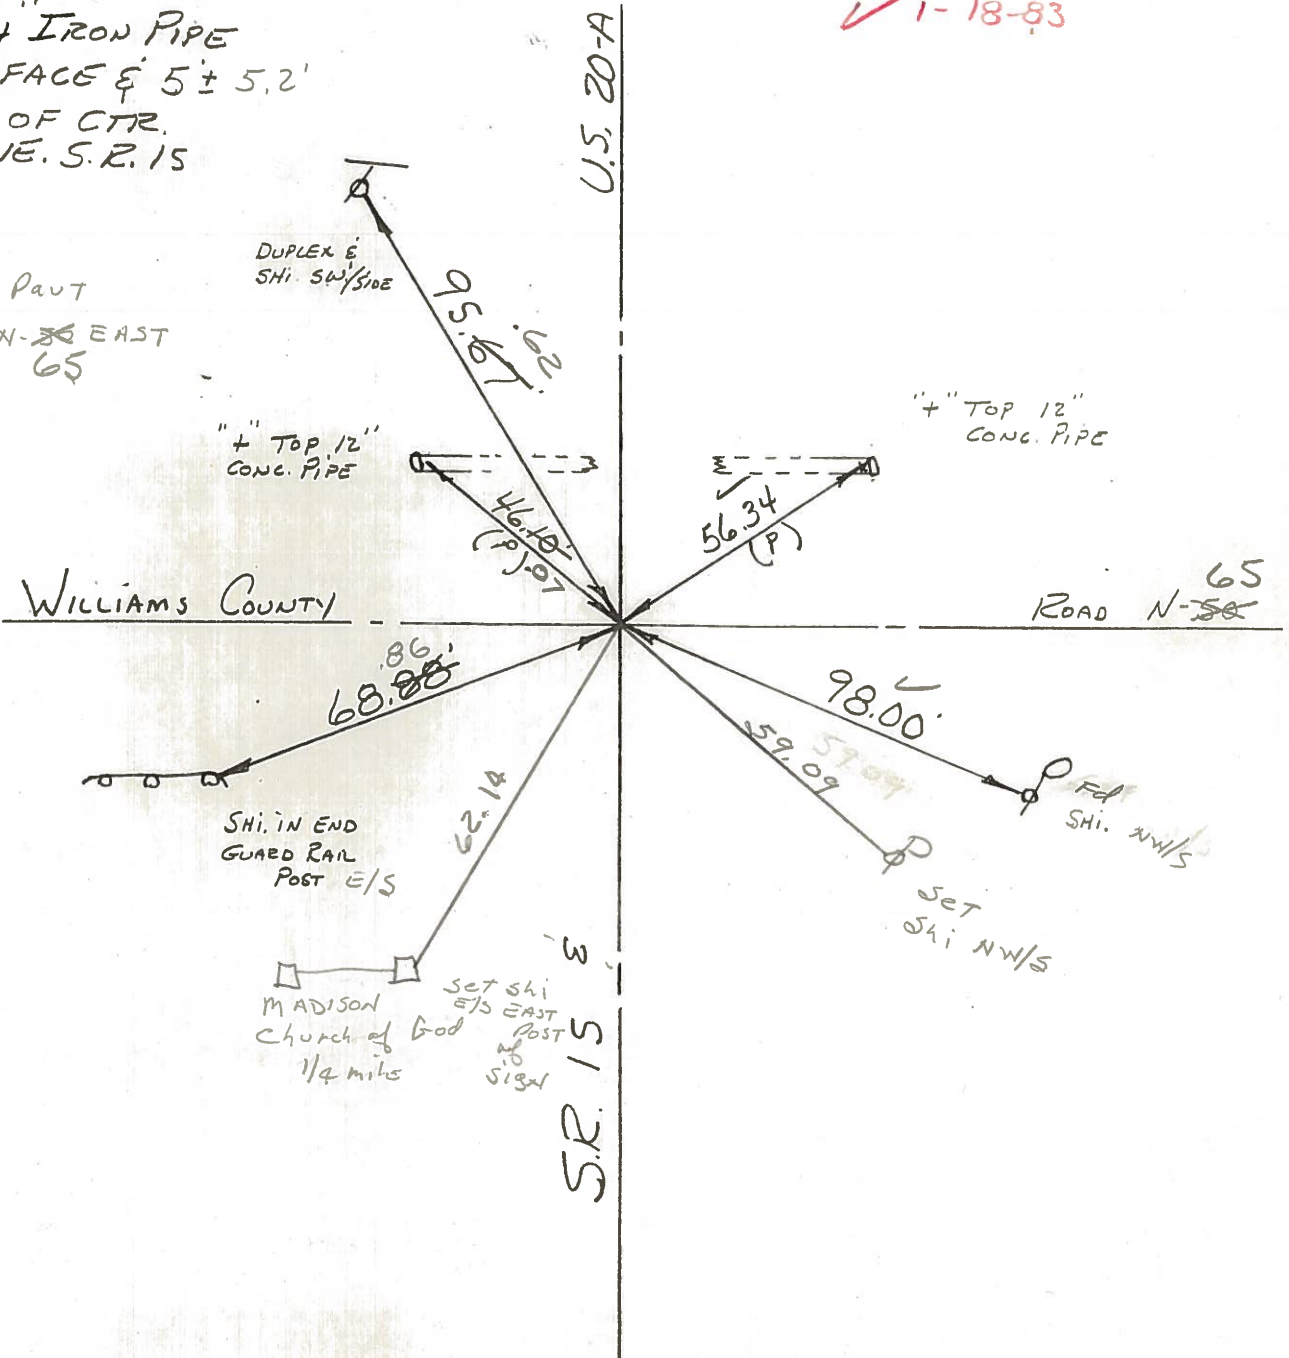 " IRON PIPE
FACE & 5'± 5.2'
OF CTR.
S.R. 15
1-18-83
U.S. 20-A
Pavt
N-50 EAST
65
DUPLEX &
SHI. SW/SIDE
95.67'
.62
"+" TOP 12"
CONC. PIPE
46.10'
(P) .07
"+" TOP 12"
CONC. PIPE
56.34
(P)
WILLIAMS COUNTY
ROAD N-50
65
.86
68.88'
98.00'
59.09
59.09
62.14
Fd
SHI. NW/S
SHI. IN END
GUARD RAIL
POST E/S
SET
Shi NW/S
MADISON
Church of God
1/4 mile
SET shi
E/S EAST
POST
of
SIGN
S.R. 15 &